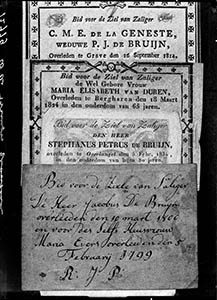 Bid voor de Ziel van Zaliger
C. M. E. de la GENESTE,
WEDUWE P. J. DE BRUIJN,
Overleden te Grave den 16 September 1814.
Bid voor de Ziel van Zaliger
de Wel Gebore Vrouw
MARIA ELISABETH VAN DUREN,
Overleden te Bergharen den 18 Maart
1824 in den ouderdom van 65 jaren.
Bid voor de Ziel van Zaliger
DEN HEER
STEPHANUS PETRUS DE BRUIJN,
in den ouderdom van bijna 80 jaren.
Bid voor de Ziele van Zaliger
De Heer Jacobus De Bruijn
overleeden den 10 maart 1806
en voor des selfs Huisvrouw
Maria Evers overleeden den 5
Februarij 1799
R: I: P: